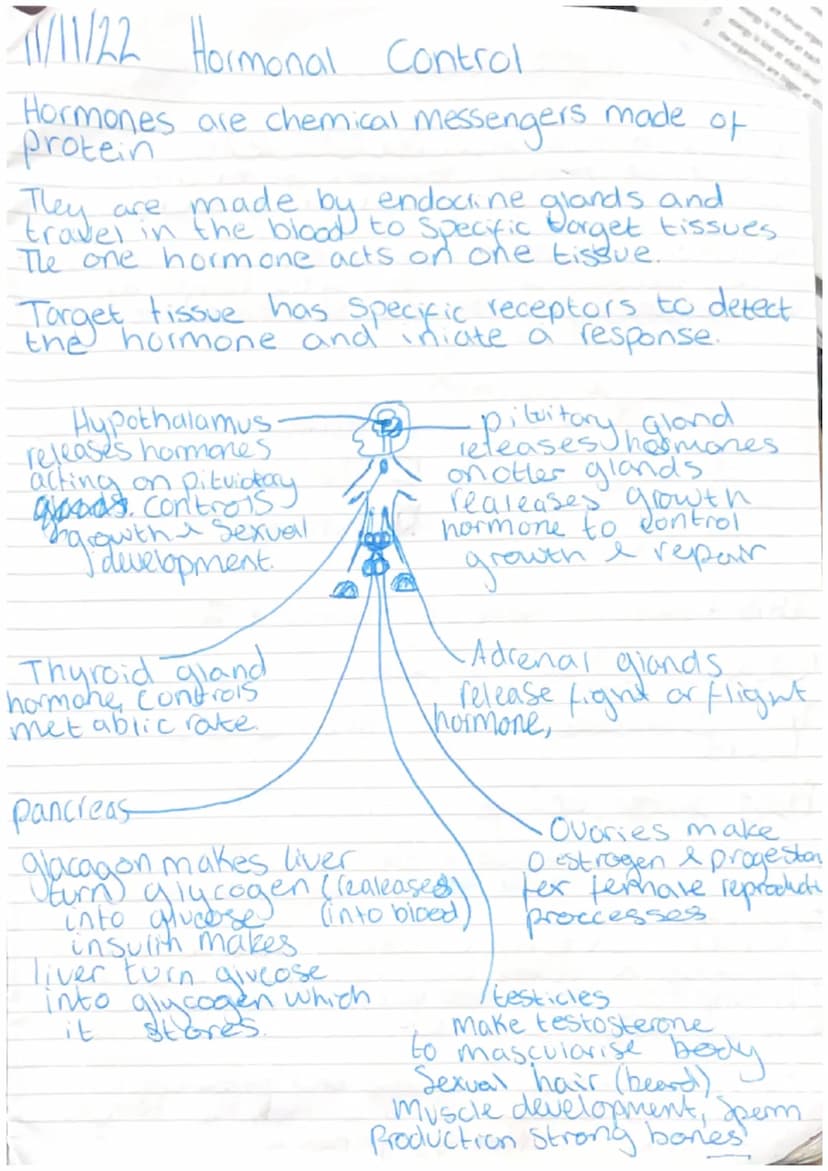 11/11/22 Hormonal Control
Hormones are chemical messengers made of
protein
They are made by endocrine glands and
travel in the blood to specific target tissues
The one hormone acts on one tissue.
Target tissue has specific receptors to detect
the hormone and iniate a response.
Hypothalamus
releases hormones
acting on pituidary
controls
growth & sexual
development.
pituitary gland
releases hormones
on other glands
realeases growth
hormone to control
growth & repair
Thyroid gland
hormone, controls
metablic rate.
Adrenal glands
release fight or flight
hormone,
pancreas
glacagon makes liver
turn glycogen (realeased
into glucose (into blood)
insulin makes
liver turn glucose
into glycogen which
it stores.
Ovaries make
Oestrogen & progeston
for female reproducti
proccesses
testicles
make testosterone
to mascularise body
sexual hair (beard)
Muscle development, sperm
Production strong bones